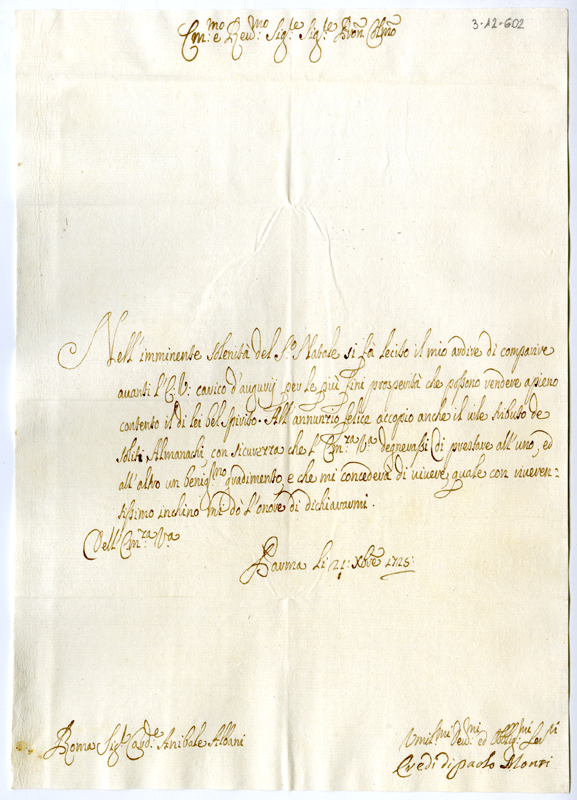 3-12-602
Em.mo e Rev.mo Sig.re Sig.re Pron Colmo
Nell'imminente solenità del S.o Natale si fà lecito il mio ardire di comparire
auanti l'E.V: carico d'augurij per le più fini prosperità che possono rendere apieno
contento il di lei bel spirito. All'annunzio felice accopio anche il vile tributo de
soliti Almanachi, con sicurezza che l'Em.za V.a degnerassi di prestare all'uno, ed
all'altro un benig.mo gradimento, e che mi concederà di viuere, quale con riueren-
tissimo inchino mi dò l'onore di dichiararmi.
Dell'Em.za V.a
Parma li 21: Xbre 1725:
Roma Sig.r Card.e Anibale Albani
Umil.mi Deu.mi ed Obblig.mi Ser.ri
Eredi di paolo Monti